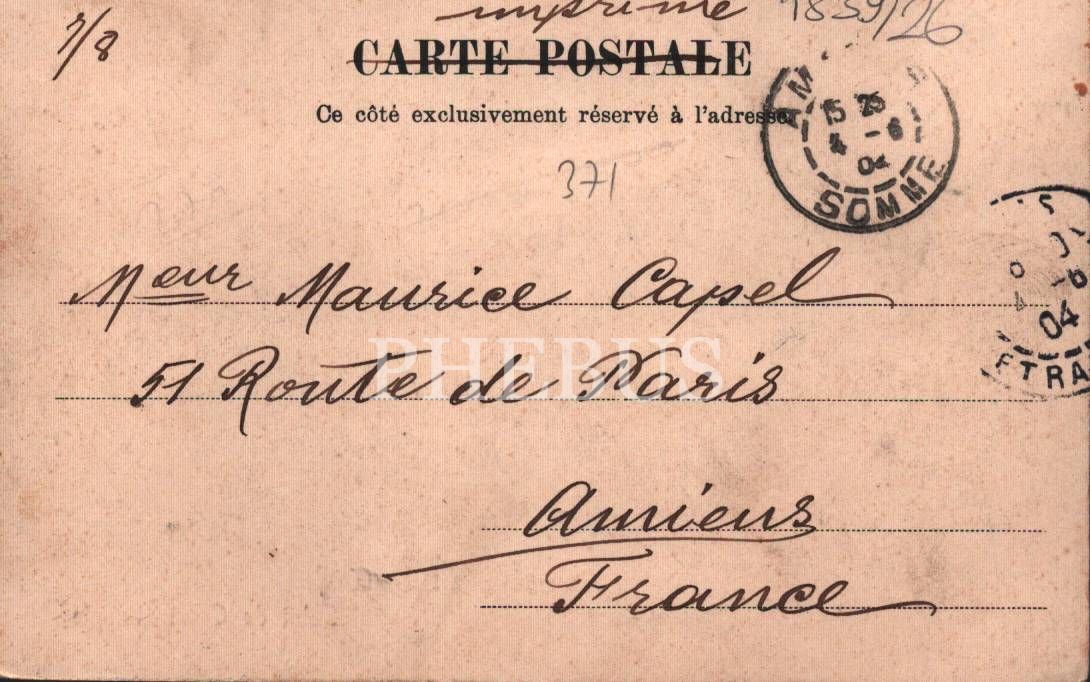 imprimé 1839/26
7/8
CARTE POSTALE
Ce côté exclusivement réservé à l'adresse
SOMME
15 25
4 -6
04
371
Mœur Maurice Capel
04
ETRA
PHEBUS
51 Route de Paris
Amiens
France